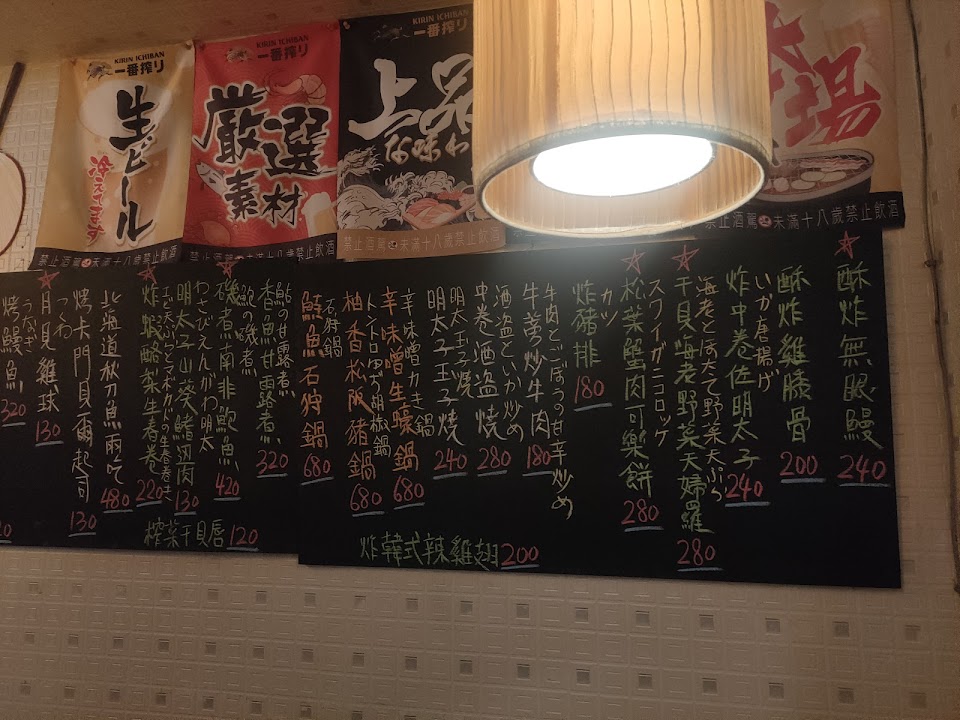 KIRIN ICHIBAN
一番搾り
生ビール
KIRIN ICHIBAN
一番搾り
厳選
素材
KIRIN ICHIBAN
一番搾り
上品
な味わ
場
禁止酒駕
未滿十八歲禁止飲酒
禁止酒駕
未滿十八歲禁止飲酒
止酒駕
未滿十八歲禁止飲酒
酥炸無眼鰻
240
酥炸雞膝骨
200
いか唐揚げ
炸中卷佐明太子
240
海老とほたて野菜天ぷら
干貝海老野菜天婦羅
280
スワイガニコロッケ
松葉蟹肉可樂餅
280
カツ
炸豬排
180
牛肉とごぼうの甘辛炒め
牛蒡炒牛肉
180
酒盗といか炒め
中卷酒盗燒
280
明太玉子燒
明太子玉子燒
240
辛味噌カキ鍋
辛味噌生蠔鍋
680
トントロゆず胡椒鍋
柚香松阪豬鍋
680
石狩鍋
鮭魚石狩鍋
680
炸韓式辣雞翅200
鮎の甘露煮
香魚甘露煮
320
鮑の磯煮
磯煮南非鮑魚
420
わさびえんがわ明太
明太子山葵鰭邊肉
130
炸蝦酪梨生春卷
220
北海道秋刀魚兩吃
480
烤卡門貝爾起司
130
つくね
月見雞球
130
うなぎ
烤鰻魚
320
榨菜干貝唇120